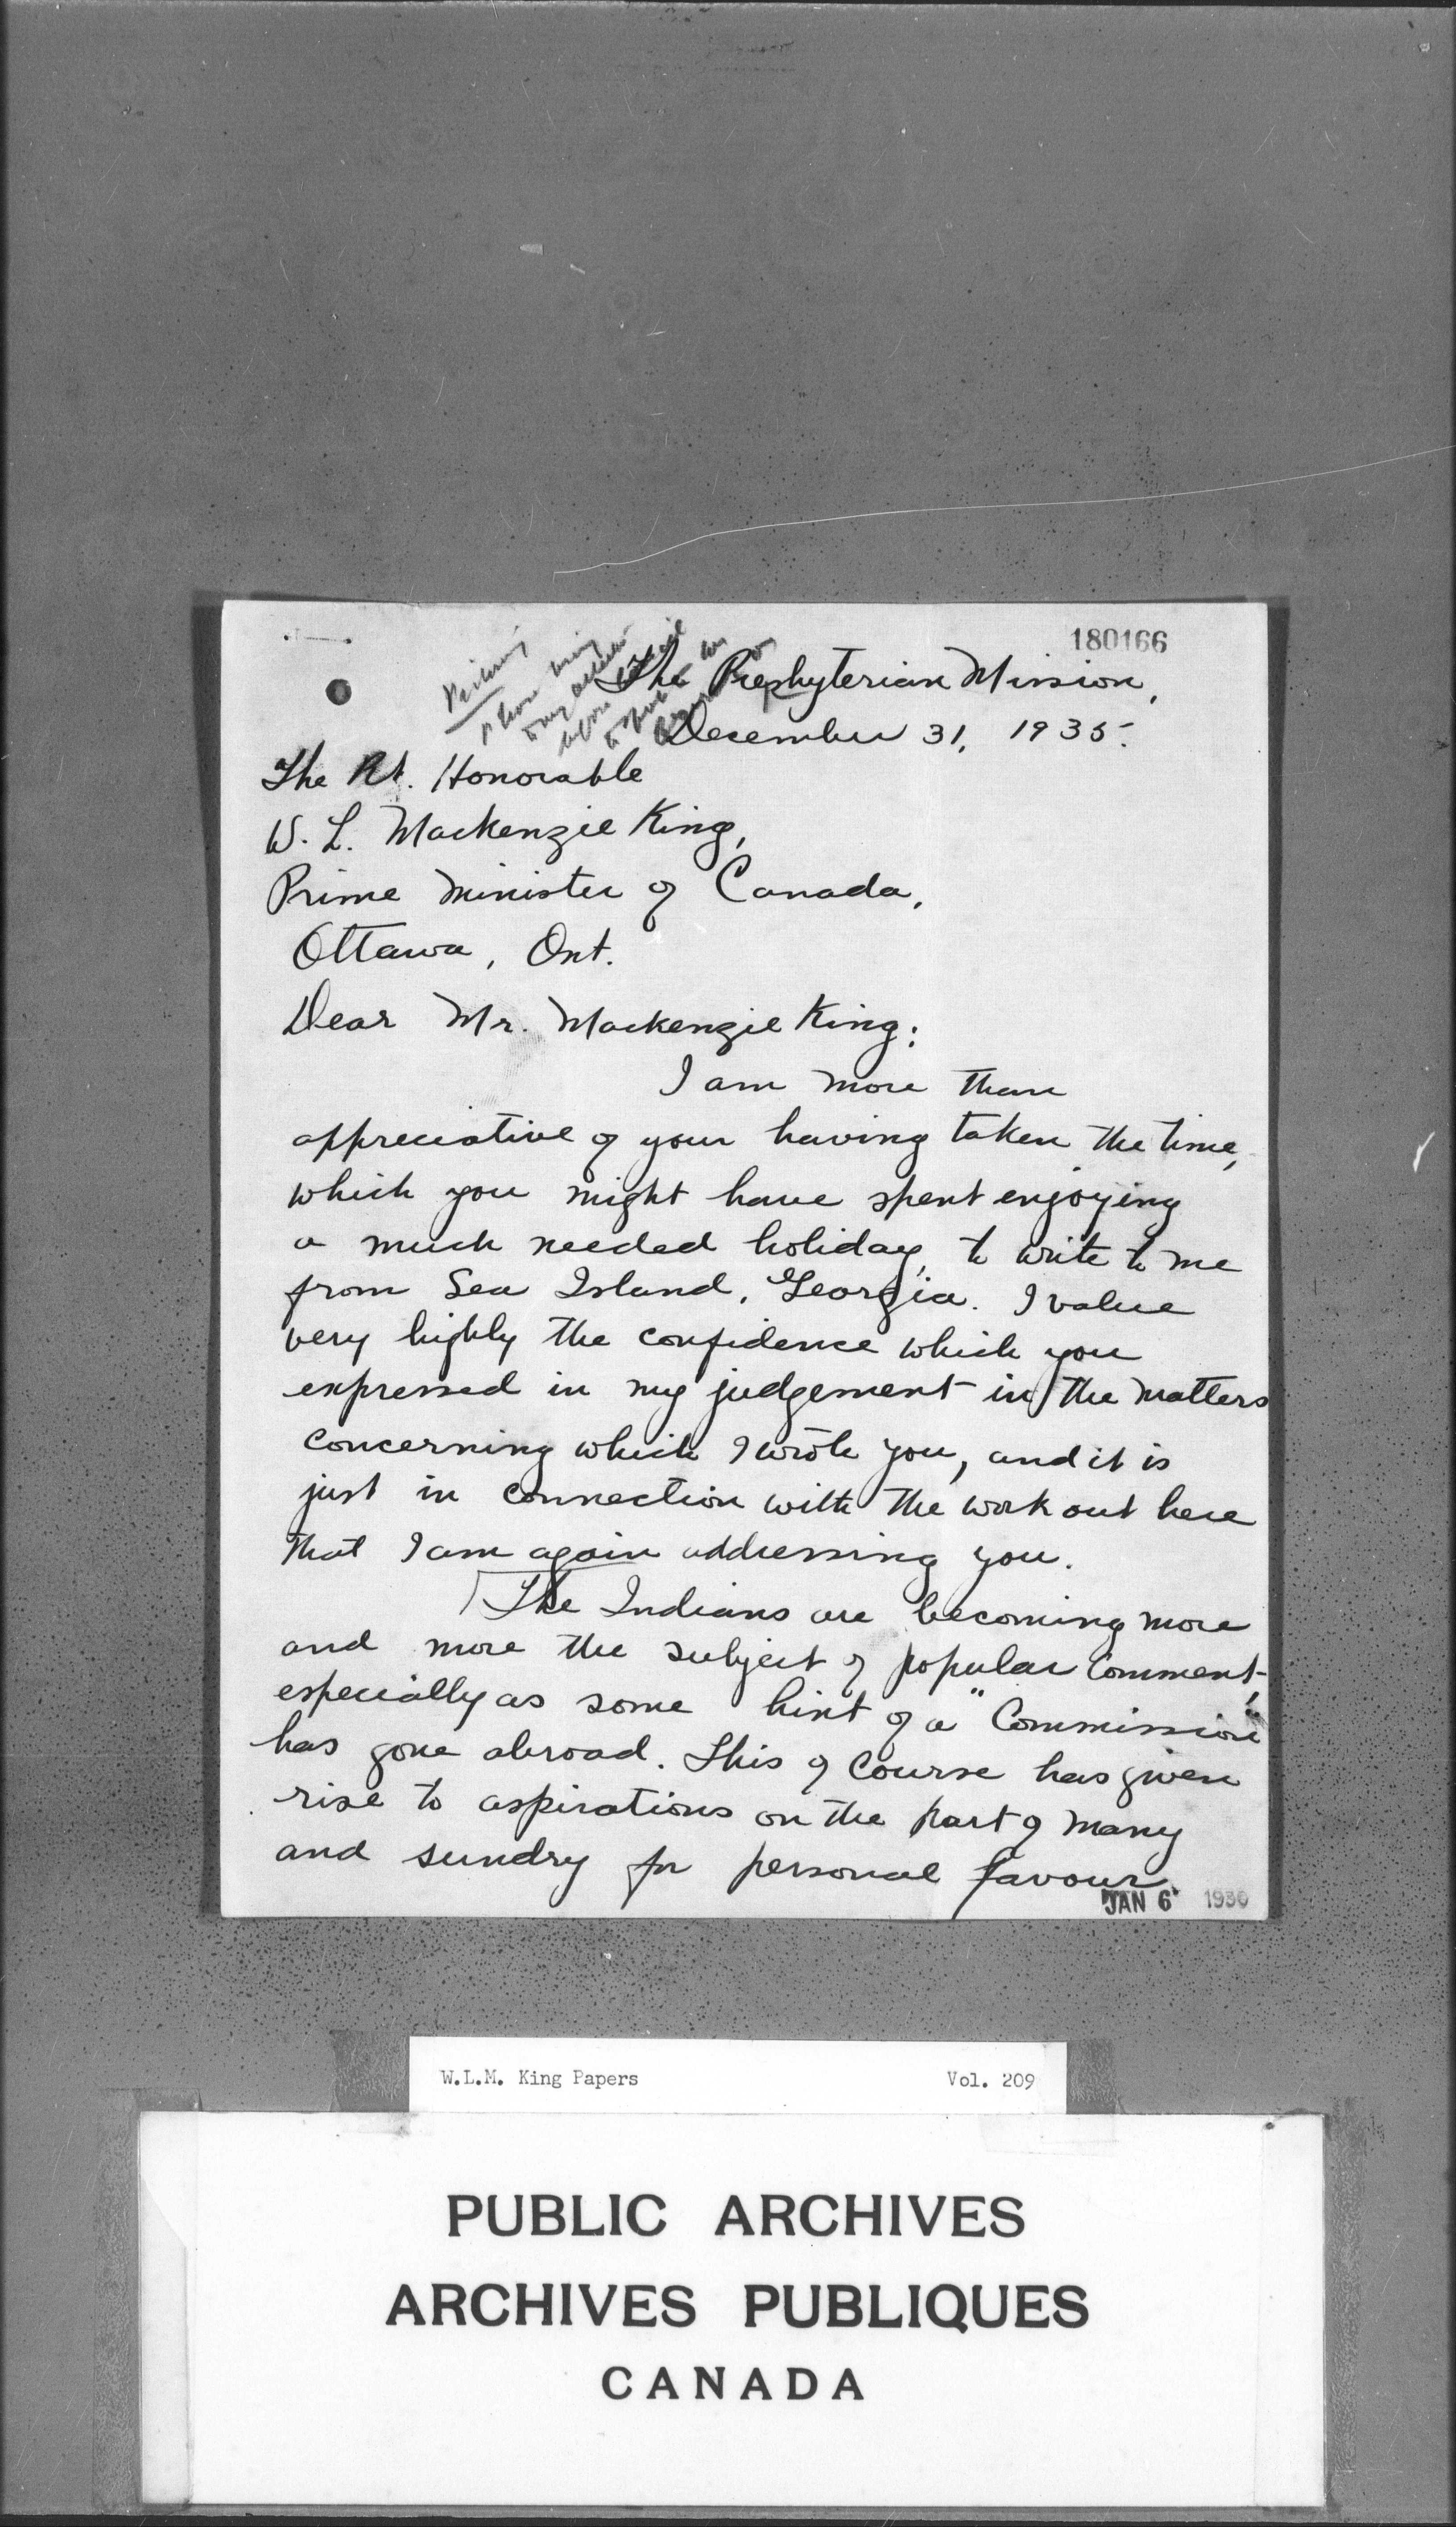 180166
The Presbyterian Mission,
December 31, 1935.
The Rt. Honorable
W. L. Mackenzie King,
Prime Minister of Canada,
Ottawa, Ont.
Dear Mr. Mackenzie King:
I am more than
appreciative of your having taken the time,
which you might have spent enjoying
a much needed holiday, to write to me
from Sea Island, Georgia. I value
very highly the confidence which you
expressed in my judgement in the matters
concerning which I wrote you, and it is
just in connection with the work out here
that I am again addressing you.
The Indians are becoming more
and more the subject of popular comment,
especially as some hint of a "Commission"
has gone abroad. This of course has given
rise to aspirations on the part of many
and sundry for personal favour
JAN 6 1936
W.L.M. King Papers Vol. 209
PUBLIC ARCHIVES
ARCHIVES PUBLIQUES
CANADA